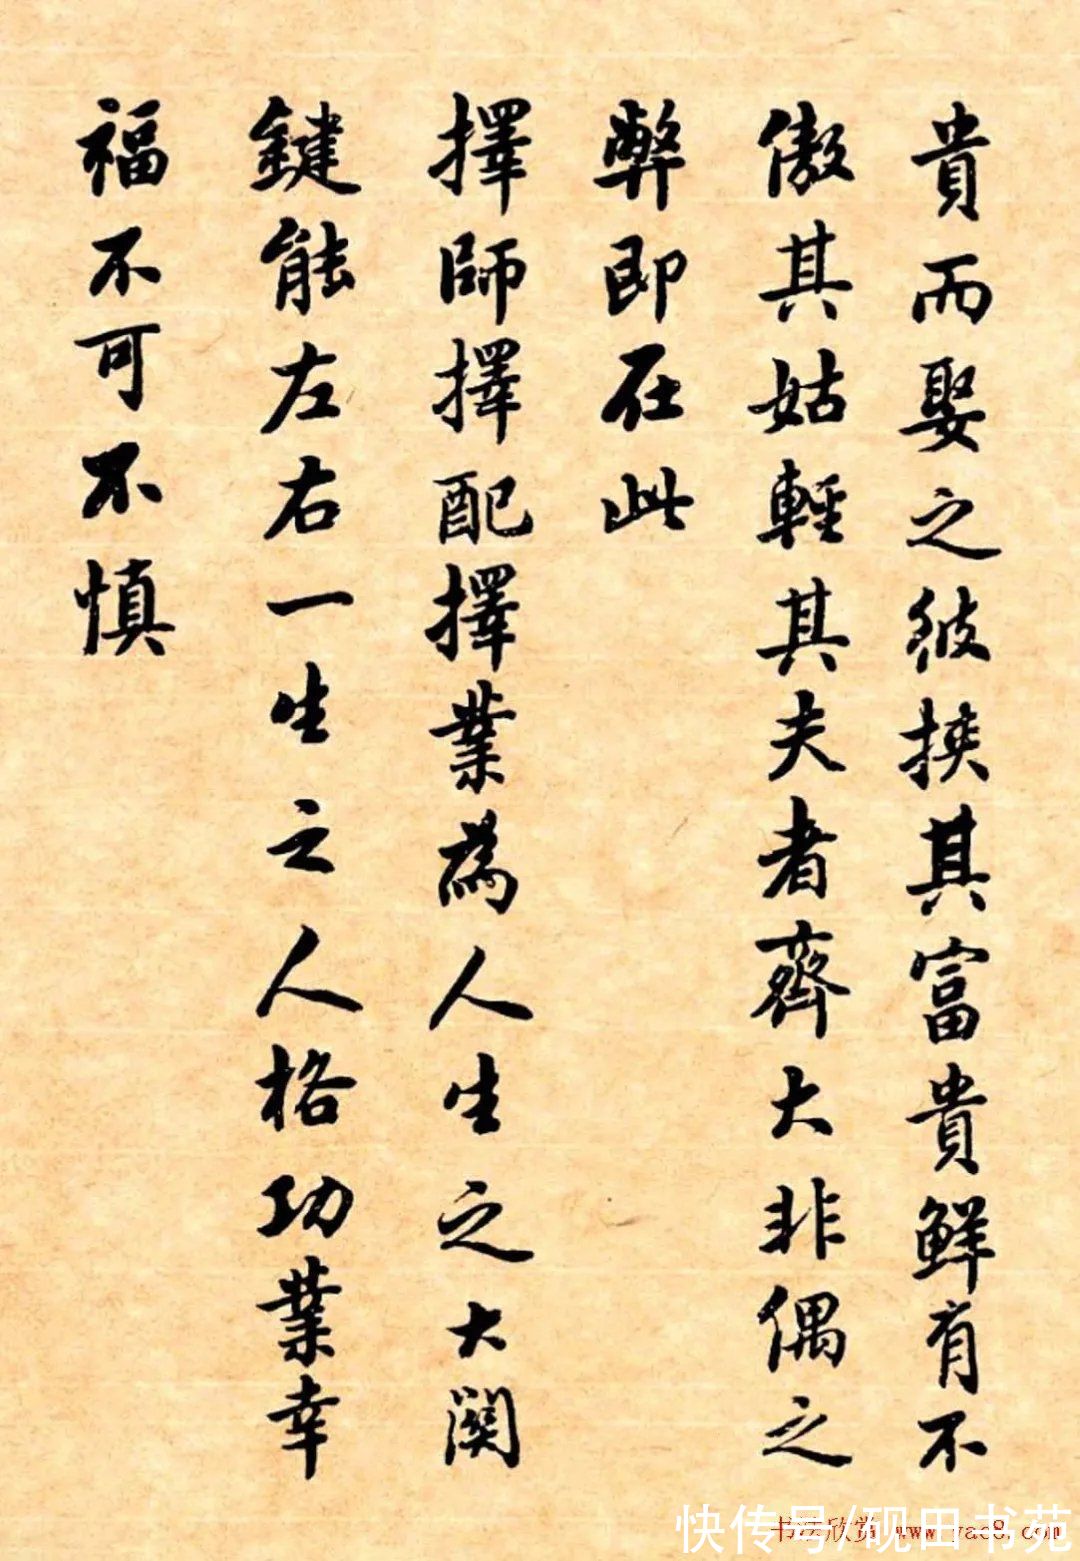 貴而娶之彼挾其富貴鮮有不
傲其姑輕其夫者齊大非偶之
弊即在此
擇師擇配擇業為人生之大関
鍵能左右一生之人格功業幸
福不可不慎
快传号/砚田书苑
书法欣赏 www.yac8.com